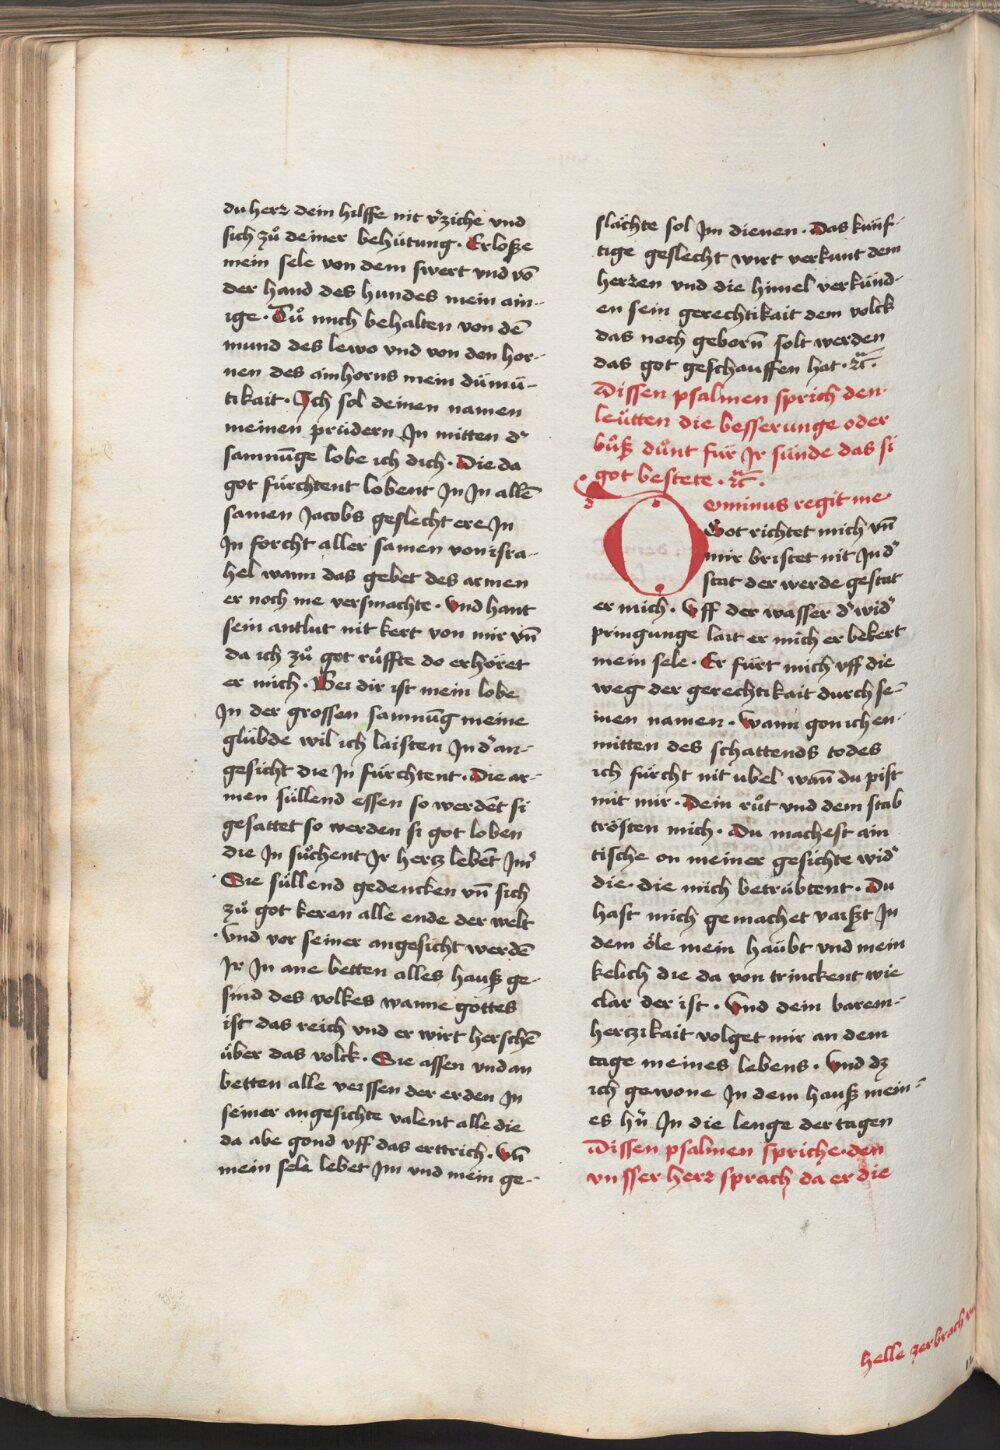 du herr dein hilffe nit v̓ziche vnd
sich zů deiner behütung · Erloße
mein sele von dem swert vnd võ
der hand des hundes mein ain-
ige · Tů mich behalten von dẽ
mund des lewo vnd von den hor-
nen des ainhorns mein dümü-
tikait · Ich sol deinen namen
meinen prüdern In mitten d̓
samnũge lobe ich dich · Die da
got fürchtent lobent In In allẽ
samen Jacobs geslecht ere In
In forcht aller samen von isra-
hel wann das gebet des armen
er noch nie versmachte · Vnd haut
sein antlut nit kert von mir vñ
da ich zů got růffte do erhöret
er mich · Bei dir ist mein lobe
In der grossen samnũg meine
glübde wil ich laisten In d̓ an-
gesicht die In fürchtent · Die ar-
men süllend essen so werdẽt si
gesattet so werden si got loben
die In sůchent Ir hertz lebẽt Im̓
Sie süllend gedencken vñ sich
zů got keren alle ende der welt
· Vnd vor seiner angesicht werdẽ
Ir In ane betten alles hauß ge-
sind des volkes wanne gottes
ist das reich vnd er wirt herschẽ
über das volck · Sie assen vnd an
betten alle veissen der erden In
seiner angesichte valent alle die
da abe gond vff das erttrich · Vñ
mein sele lebet Im vnd mein ge-
slächte sol Im dienen · Das künf-
tige geslecht wirt verkunt dem
herren vnd die himel verkünd-
en sein gerechtikait dem volck
das noch geborñ solt werden
das got geschauffen hat · ꝛc̃ ·
Dissen psalmen sprich den
leütten die besserunge oder
bůß důnt für Ir sünde das si
got bestete · ꝛc̃ ·
Dominus regit me
Got richtet mich vñ
mir bristet nit In d̓
stat der werde gestat
er mich · Vff der wasser d̓ wid̓
pringunge lait er mich er bekert
mein sele · Er fürt mich vff die
weg der gerechtikait durch se-
inen namen · Wann gon ich en-
mitten des schattends todes
ich fürcht nit ubel wañ du pist
mit mir · Dein růt vnd dem stab
trösten mich · Du machest ain
tische on meiner gesichte wid̓
die · die mich betrübtent · Du
hast mich gemachet vaißt In
dem öle mein haübt vnd mein
kelich die da von trinckent wie
clar der ist · Vnd dein barem-
hertzikait volget mir an dem
tage meines lebens · Vnd dz
ich gewone In dem hauß mein-
es hr̃n In die lenge der tagen
Dissen psalmen spriche · den
vnsser herr sprach da er die
helle zerbrach